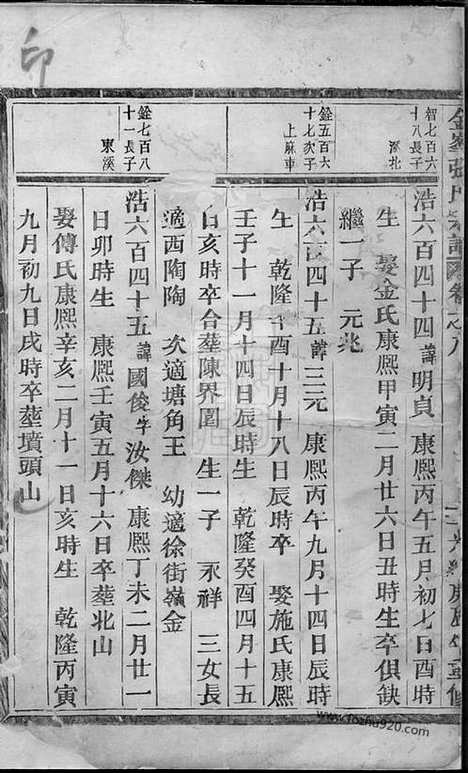 金峯張氏宗譜卷之八
智七百六
十八長子
溪北
浩六百四十四諱明貞 康熙丙午五月初七日酉時
生 娶金氏康熙甲寅二月廿六日丑時生卒俱缺
繼一子 元兆
銓五百六
十七次子
上麻車
浩六百四十五諱三元 康熙丙午九月十四日辰時
生 乾隆辛酉十月十八日辰時卒 娶施氏康熙
壬子十一月十四日辰時生 乾隆癸酉四月十五
日亥時卒合塟陳界園 生一子 永祥 三女長
適西陶陶 次適塘角王 幼適徐街嶺金
銓七百八
十一長子
東溪
浩六百四十五諱國俊字汝傑 康熙丁未二月廿一
日卯時生 康熙壬寅五月十六日卒塟北山
娶傅氏康熙辛亥二月十一日亥時生 乾隆丙寅
九月初九日戌時卒塟墳頭山
印
www.fozhu920.com